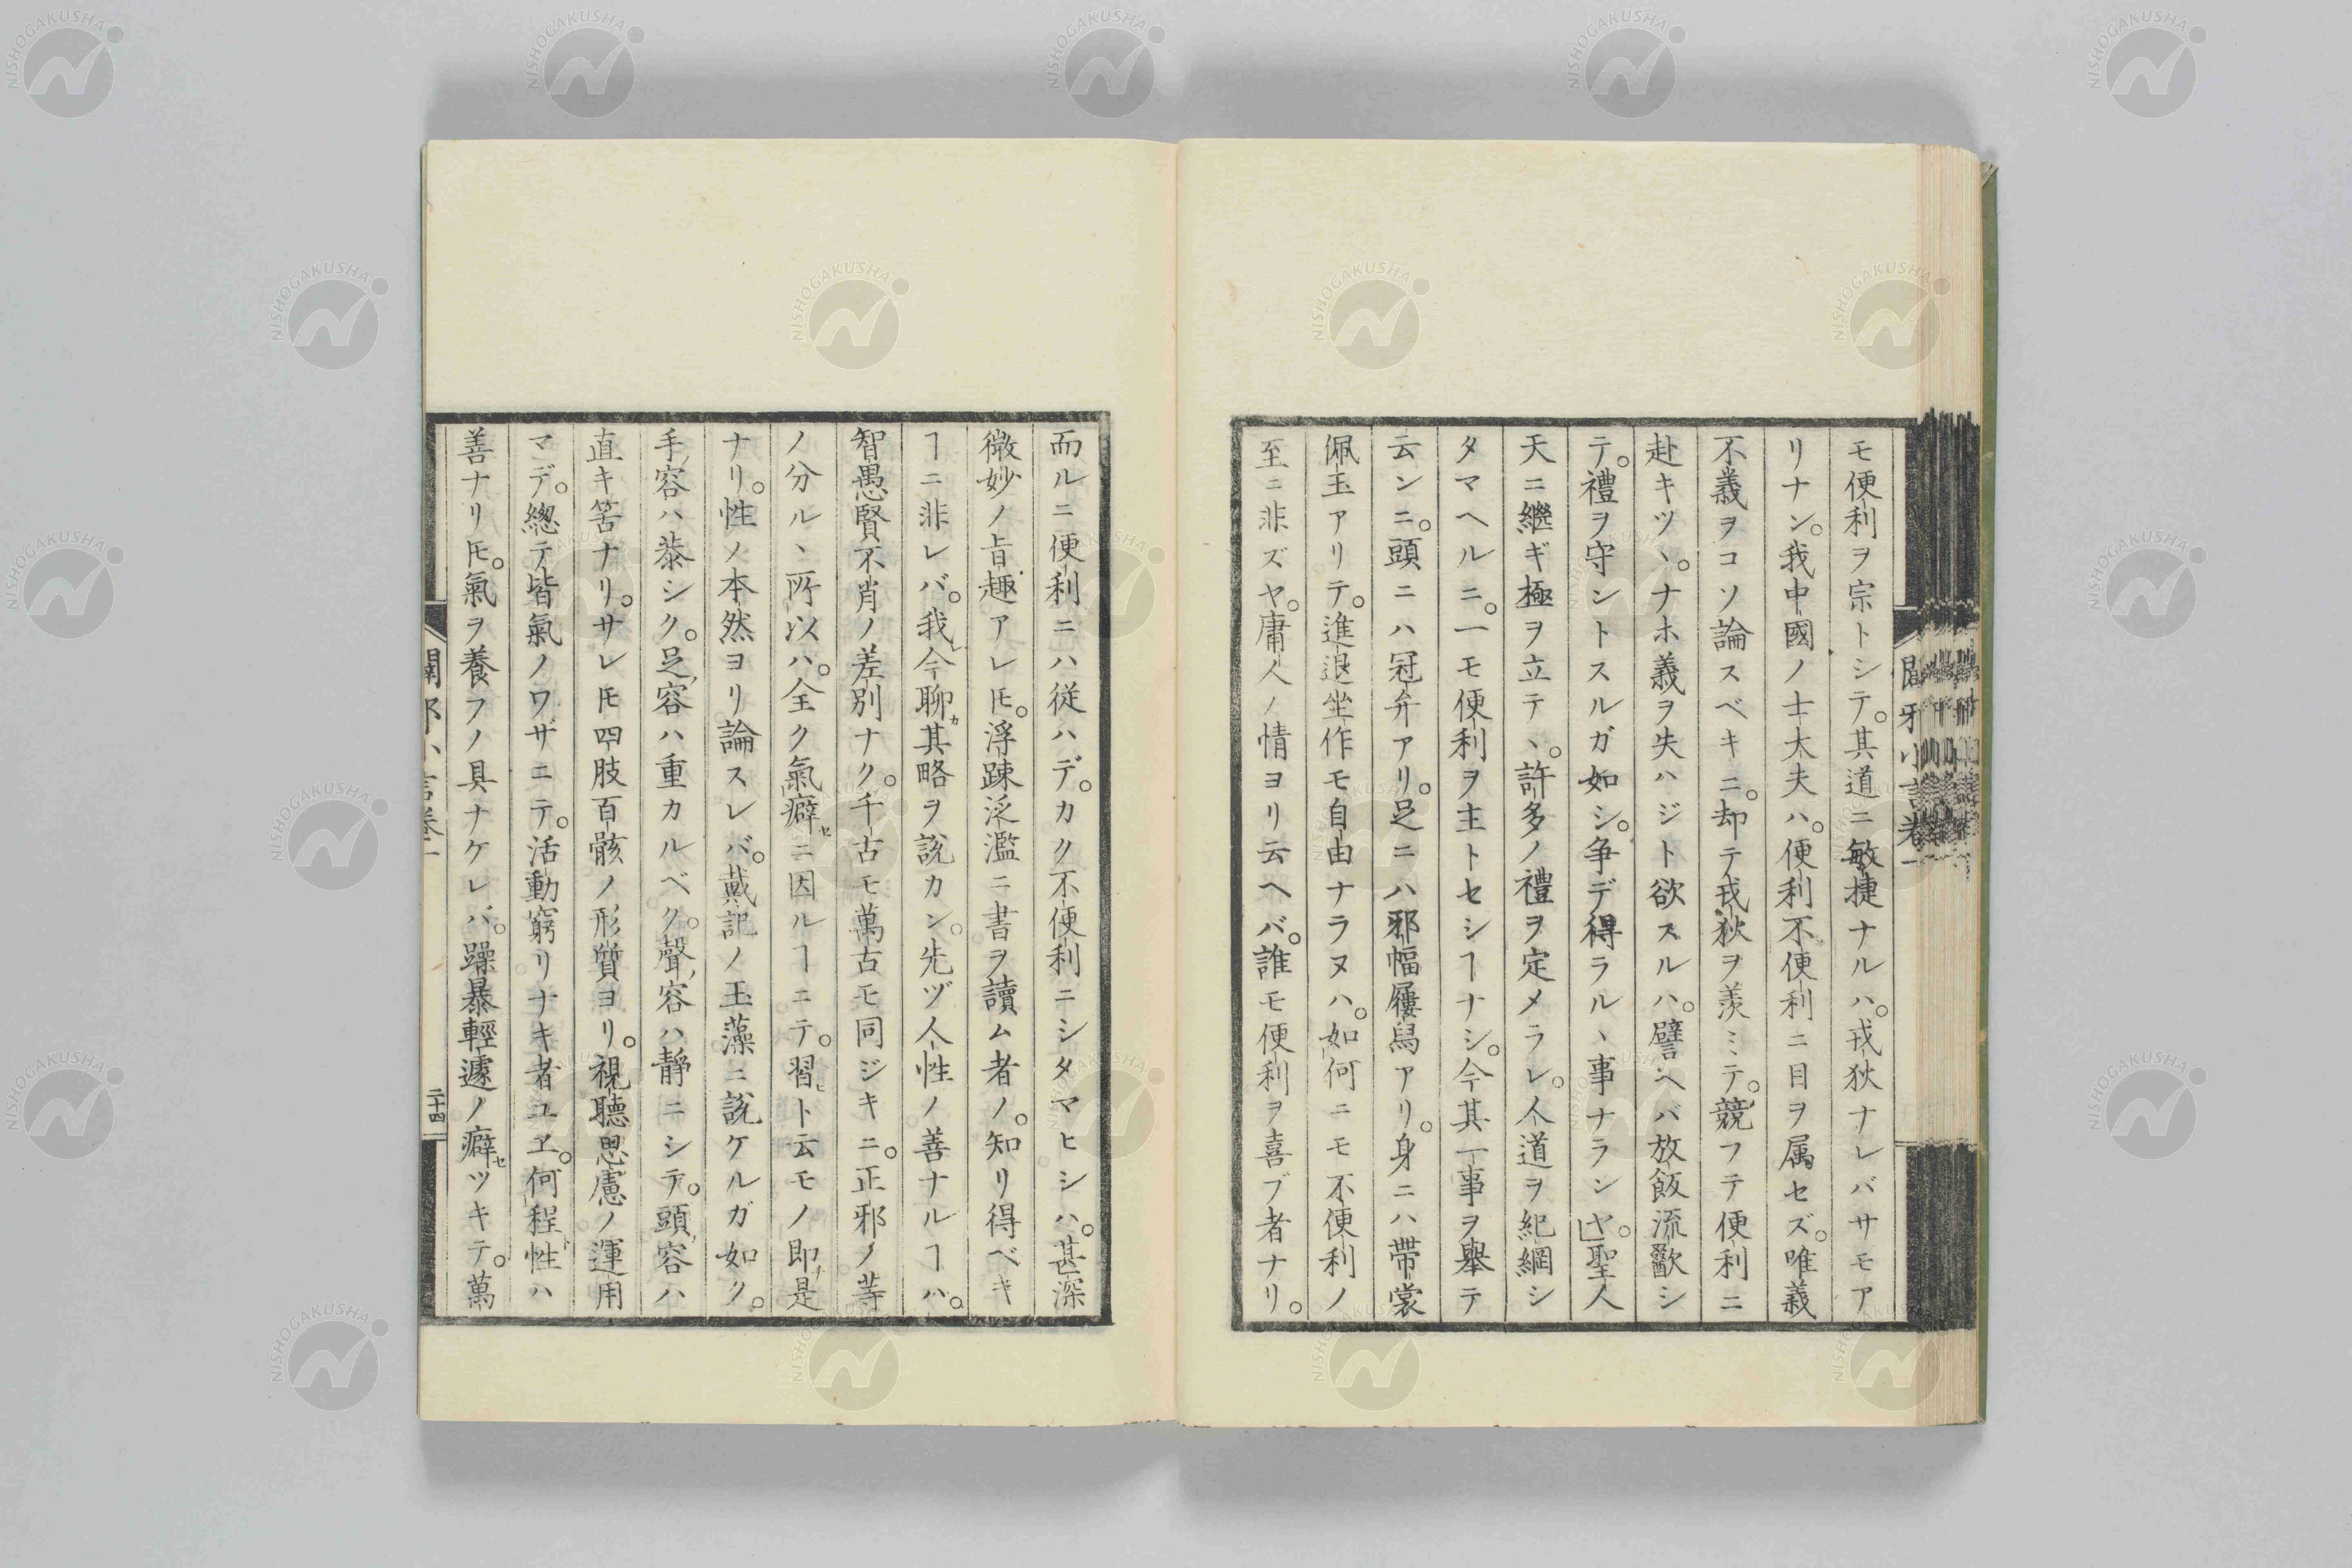 モ便利ヲ宗トシテ。其道ニ敏捷ナルハ。戎狄ナレバサモア
リナン。我中國ノ士大夫ハ。便利不便利ニ目ヲ属セズ。唯義
不義ヲコソ論スベキニ。却テ戎狄ヲ羨ミテ。競フテ便利ニ
赴キツヽ。ナホ義ヲ失ハジト欲スルハ。譬ヘバ放飯流歠シ
テ。禮ヲ守ントスルガ如シ。争デ得ラルヽ事ナランヤ。聖人
天ニ繼ギ極ヲ立テヽ。許多ノ禮ヲ定メラレ。人道ヲ紀綱シ
タマヘルニ。一モ便利ヲ主トセシヿナシ。今其一事ヲ舉テ
云ンニ。頭ニハ冠弁アリ。足ニハ邪幅屨舄アリ。身ニハ帶裳
佩玉アリテ。進退坐作モ自由ナラヌハ。如何ニモ不便利ノ
至ニ非ズヤ。庸人ノ情ヨリ云ヘバ。誰モ便利ヲ喜ブ者ナリ。
而ルニ便利ニハ従ハデ。カク不便利ニシタマヒシハ。甚深
微妙ノ旨趣アレ𪜈。浮踈泛濫ニ書ヲ讀ム者ノ。知リ得ベキ
ヿニ非レバ。我レ今聊カ其略ヲ説カン。先ヅ人性ノ善ナルヿハ。
智愚賢不肖ノ差別ナク。千古モ萬古モ同ジキニ。正邪ノ等
ノ分ルヽ所以ハ。全ク氣癖セニ因ルヿニテ。習ヒト云モノ即ナ是
ナリ。性ノ本然ヨリ論スレバ。戴記ノ玉藻ニ説ケルガ如ク。
手容ハ恭シク。足容ハ重カルベク。聲容ハ靜ニシテ。頭容ハ
直キ筈ナリ。サレ𪜈四肢百骸ノ形質ヨリ。視聽思慮ノ運用
マデ。總テ皆氣ノワザニテ。活動窮リナキ者ユヱ。何程性ハ
善ナリ𪜈。氣ヲ養フノ具ナケレバ。躁暴輕遽ノ癖セツキテ。萬
二十四
NISHOGAKUSHA